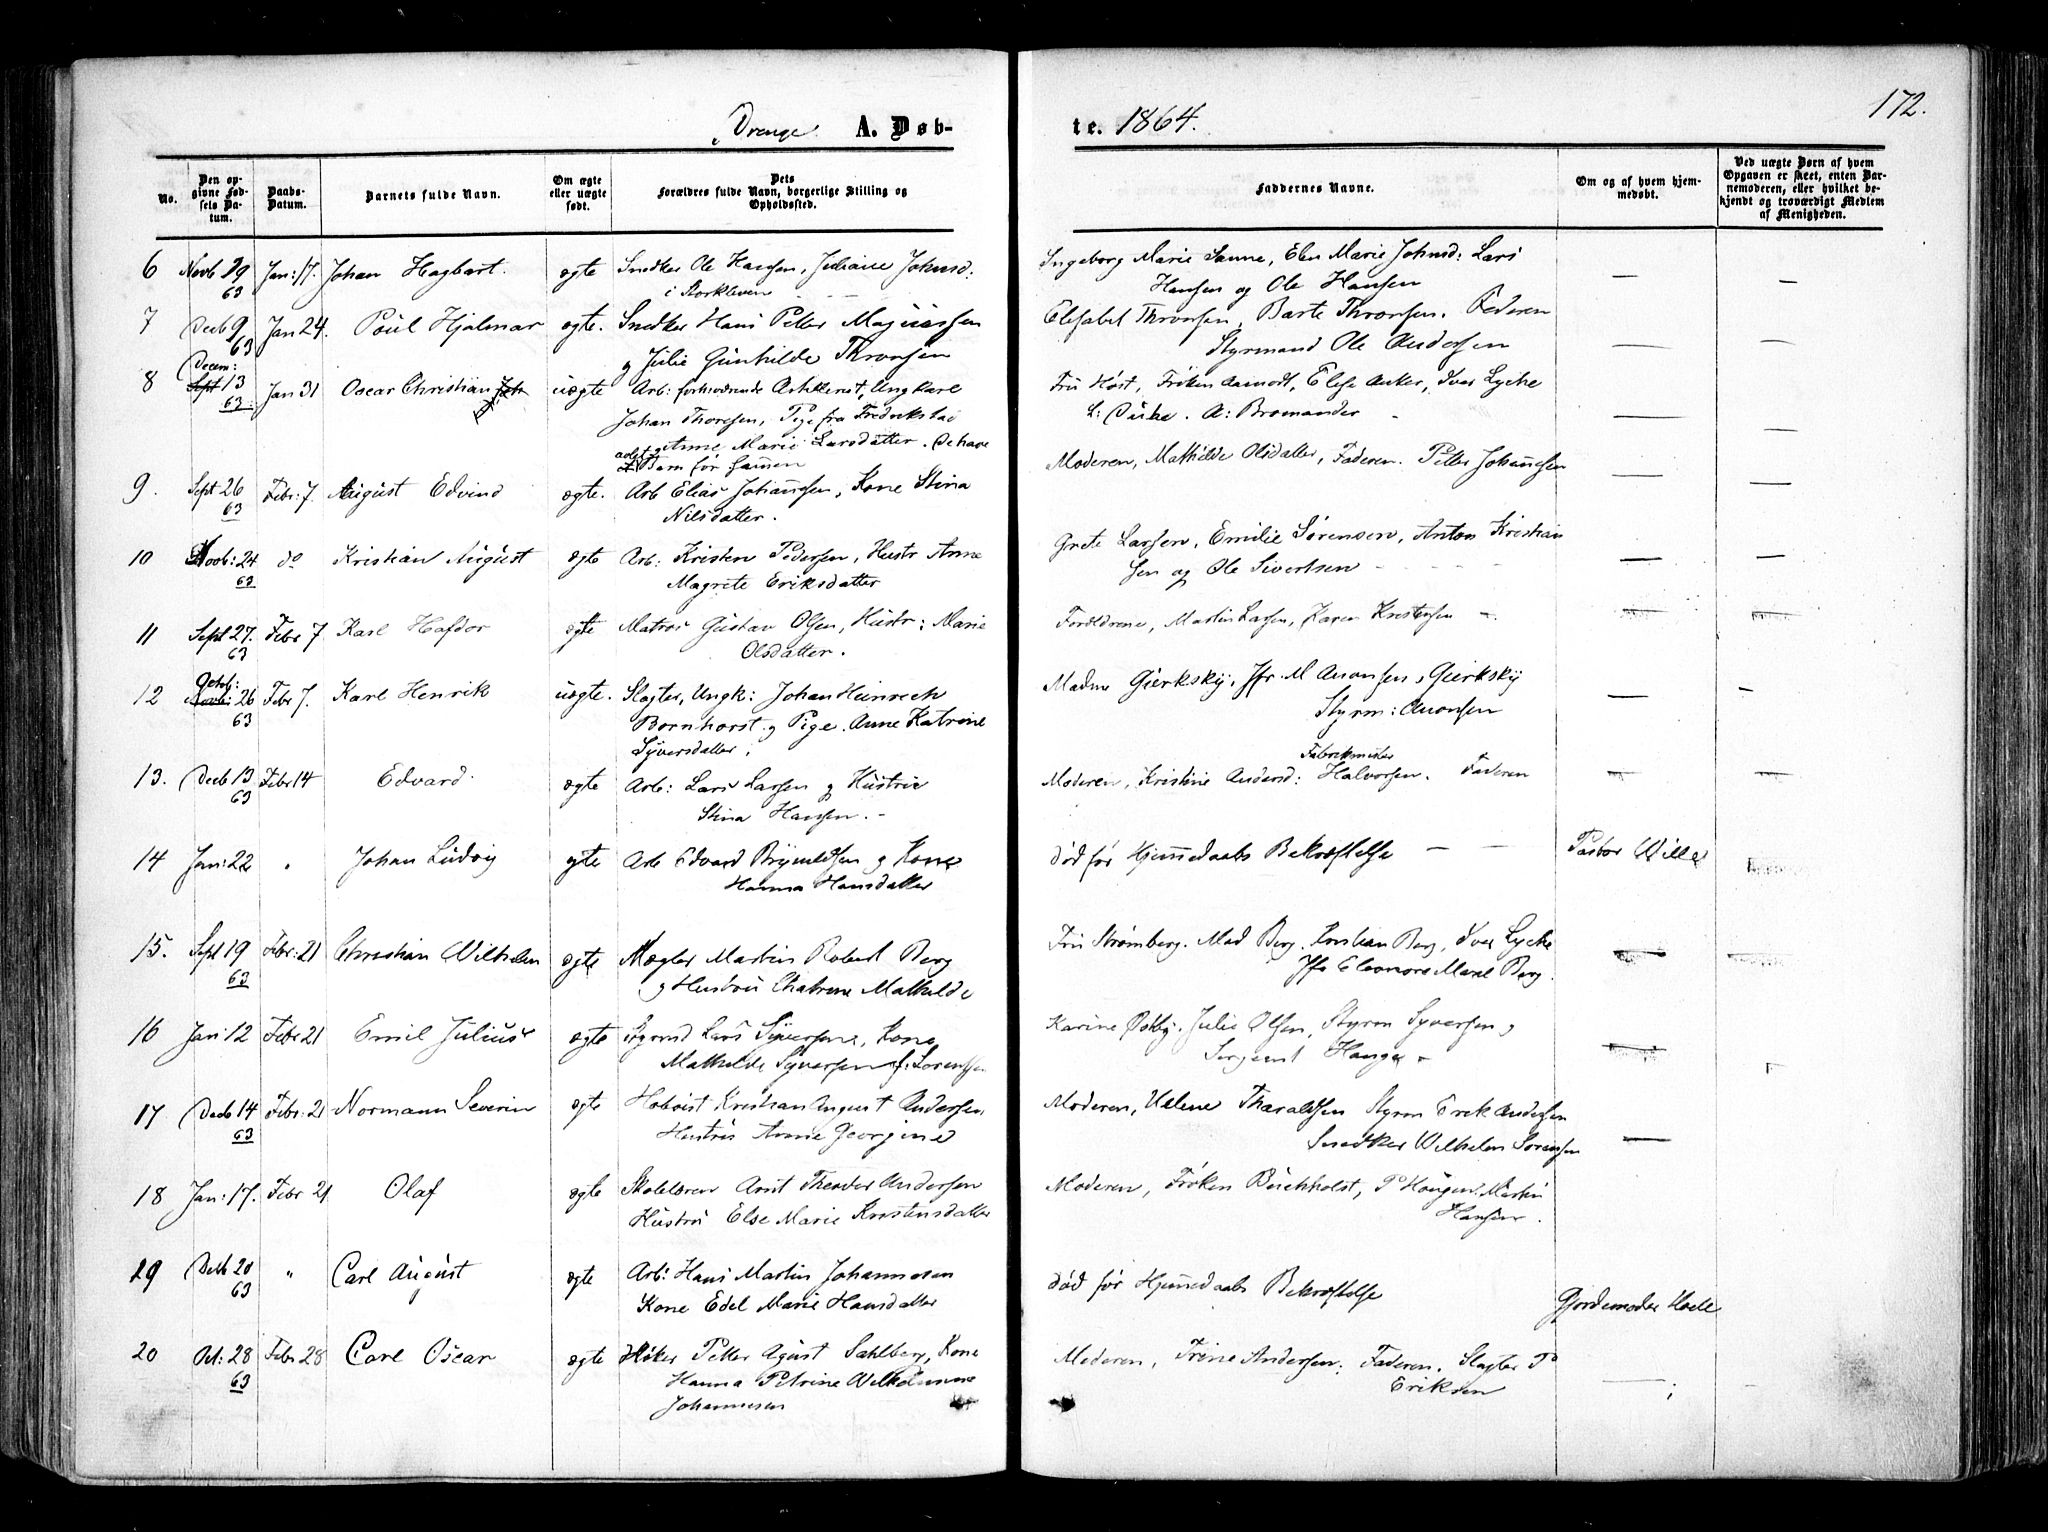 Drenge. A. Døb-
No.
Den op-
givne Fød-
sels Da-
tum.
Daabs-
Datum.
Barnets fulde Navn.
Om ægte
eller uægte
født.
Dets
Forældres fulde Navn, borgerlige Stilling og
Opholdssted.
6 Novb 19 Jan: 17. Johan Hagbart. ægte Snedker Ole Hansen, Juliane Johnsd:
63 i Storkleven
7 Decb 9 Jan 24. Poul Hjalmar ægte. Snedker Hans Petter Magnussen
63 g Julie Gunhilde Thronsen
Decem:
8 Sept 13 Jan 31 Oscar Christian Joh uægte Arb: forhværende Ungkarl
63 Johan Thoresen, Pige fra Frederikstad
Anne Marie Larsdatter. De have
avlet Barn før sammen
9. Sept 26 Febr: 7. August Edvind ægte. Arb Elias Johansen, Kone Stina
63 Nilsdatter.
10 Novb: 24 do Kristian August ægte Arb: Kristen Pedersen, Hustr Anne
63 Magrete Eriksdatter
11 Sept 27. Febr 7 Karl Hafdor ægte Matros Gustav Olsen, Hustr: Marie
63 Olsdatter.
Octob:
12 Novb: 26 Febr 7. Karl Henrik uægte. Slagter, Ungk: Johan Heinrech
63 Bornhorst g Pige. Anne Katrine
Syversdatter.
13. Decb 13 Febr 14 Edvard. ægte Arb: Lars Larsen g Hustrue
63 Stina Hansen. -
14 Jan: 22 " Johan Ludvig ægte Arb Edvard Brynildsen g Kone
Hanna Hansdatter
15. Sept 19 Febr: 21 Christian Wilhelm ægte Mægler Martin Robert Berg
63 g Hustru Chatrine Mathilde
16 Jan: 12 Febr 21 Emil Julius ægte Lars Syversen, Kone
Mathilde Syversen f: Sørensen
17 Decb 14 Febr: 21 Normann Severin ægte Hoboist Kristian August Andersen
63 Hustru Anne Georgine
18 Jan: 17. Febr 21 Olaf ægte Skolelæren Arnt Theodor Andersen
Hustru Else Marie Kristensdatter
19 Decb 20 " Carl August ægte Arb: Hans Martin Johannesen
63 Kone Edel Marie Hansdatter
20 Oct: 28 Febr 28 Carl Oscar ægte Høker Petter Agust Sahlberg, Kone
63 Hanna Petrine Wilhelmine
Johannesen
te. 1864. 172.
Faddernes Navne.
Om og af hvem hjem-
medøbt.
Ved uægte Børn af hvem
Opgaven er skeet, enten Bar-
nemoderen, eller hvilket be-
kjendt og troværdigt Medlem
af Menigheden.
Ingeborg Marie Sanne, Elen Marie Johnsd: Lars
Hansen og Ole Hansen
Elisabet Thronsen, Barte Thronsen. Faderen
Styrmand Ole Andersen
Fru Høst, Frøken Aamodt, Elise Anker, Iver Lyche
A: Bromander
Moderen, Mathilde Olsdatter, Faderen. Petter Johannesen
Grete Larsen, Emilie Sørensen, Anton Kristian
sen og Ole Sivertsen
Forældrene, Martin Larsen, Karen Kristensen
Madme Gierksky, Jfr. M Anonsen, Gierksky
Styrm: Anonsen
Fabrikmester
Moderen, Kristine Andersd: Halvorsen. Faderen
død før Hjemmedaabs Bekræftelse Pastor Wille
Fru Strømberg. Mad Berg. Kristian Berg, Iver Lyche
Jfr Eleonore Marie Berg.
Karine Østby. Julie Olsen, Styrm Syversen g
Sergeant Hauge
Moderen, Helene Tharaldsen Styrm Erek Andersen
Snedker Wilhelm Sørensen
Moderen, Frøken Buchholst, P Haugen. Martin
Hansen.
død før Hjemmedaabs Bekræftelse
Gjordemoder Hoele
Moderen, Trine Andersen. Faderen. Slagter P
Eriksen